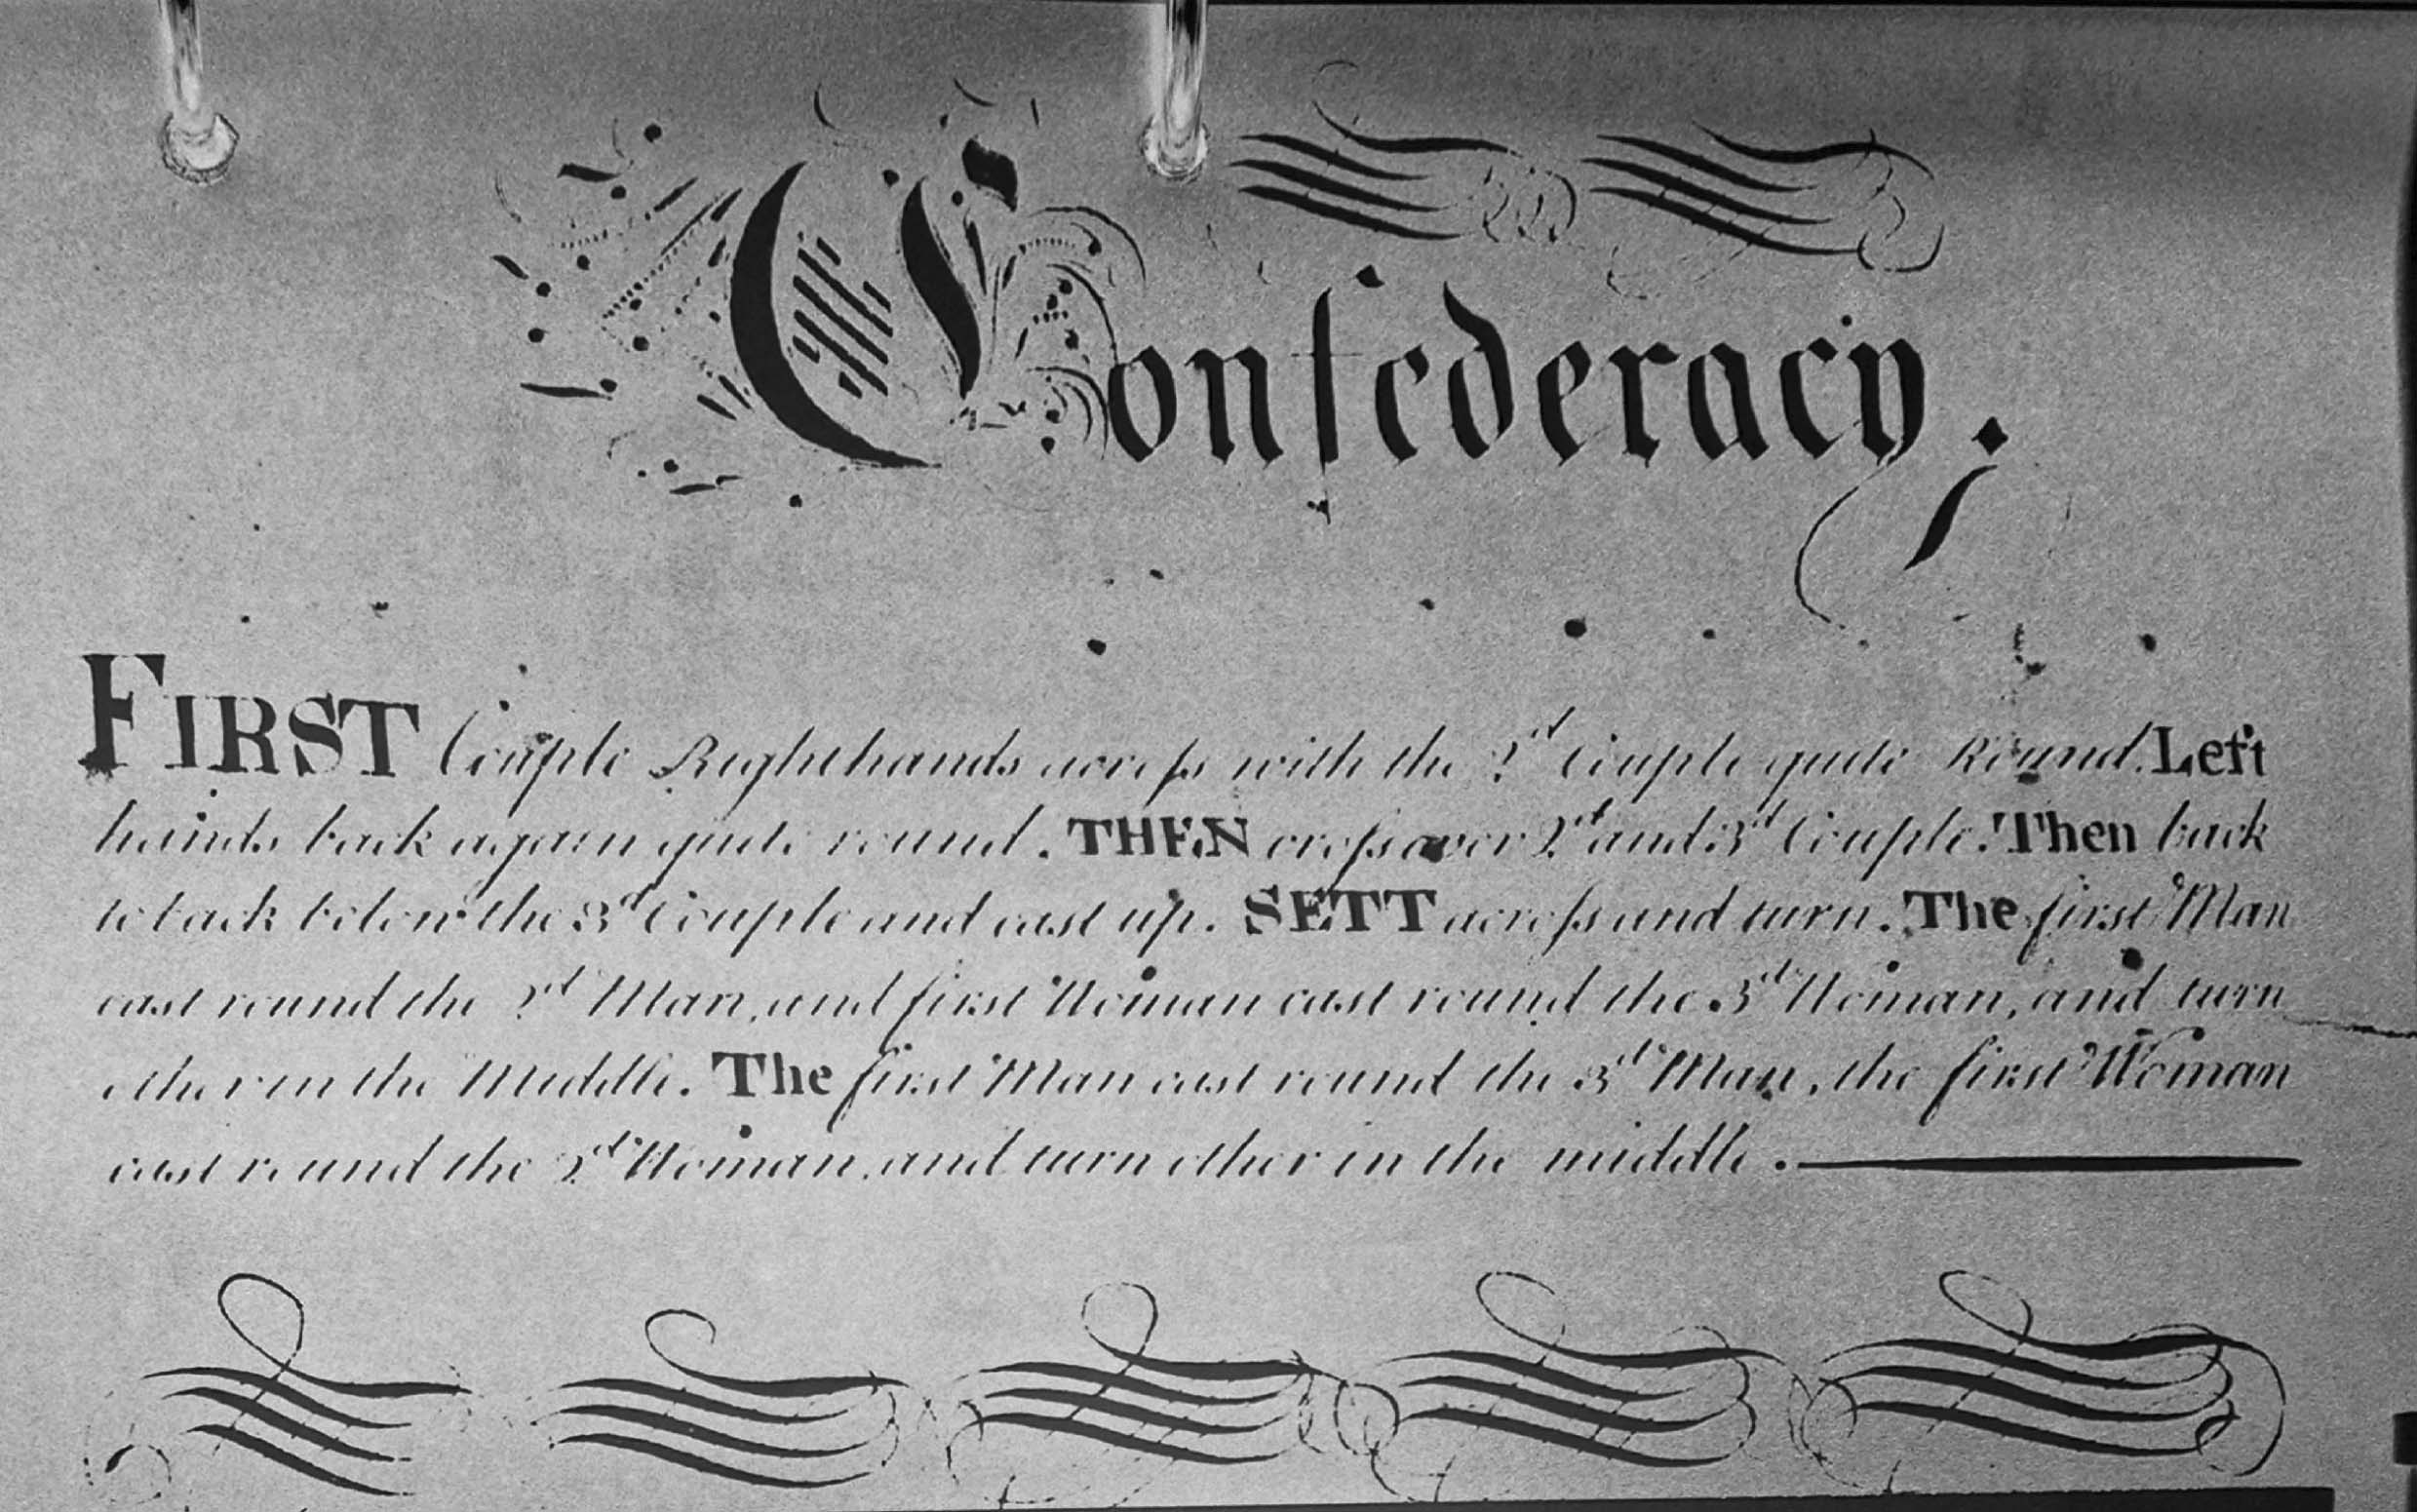 Confederacy.
FIRST Couple Right hands across with the 2d Couple quite Round. Left
hands back again quite round. THEN cross over 2d and 3d Couple. Then back
to back below the 3d Couple and cast up. SETT across and turn. The first Man
cast round the 2d Man, and first Woman cast round the 3d Woman, and turn
other in the Middle. The first Man cast round the 3d Man, the first Woman
cast round the 2d Woman, and turn other in the middle.